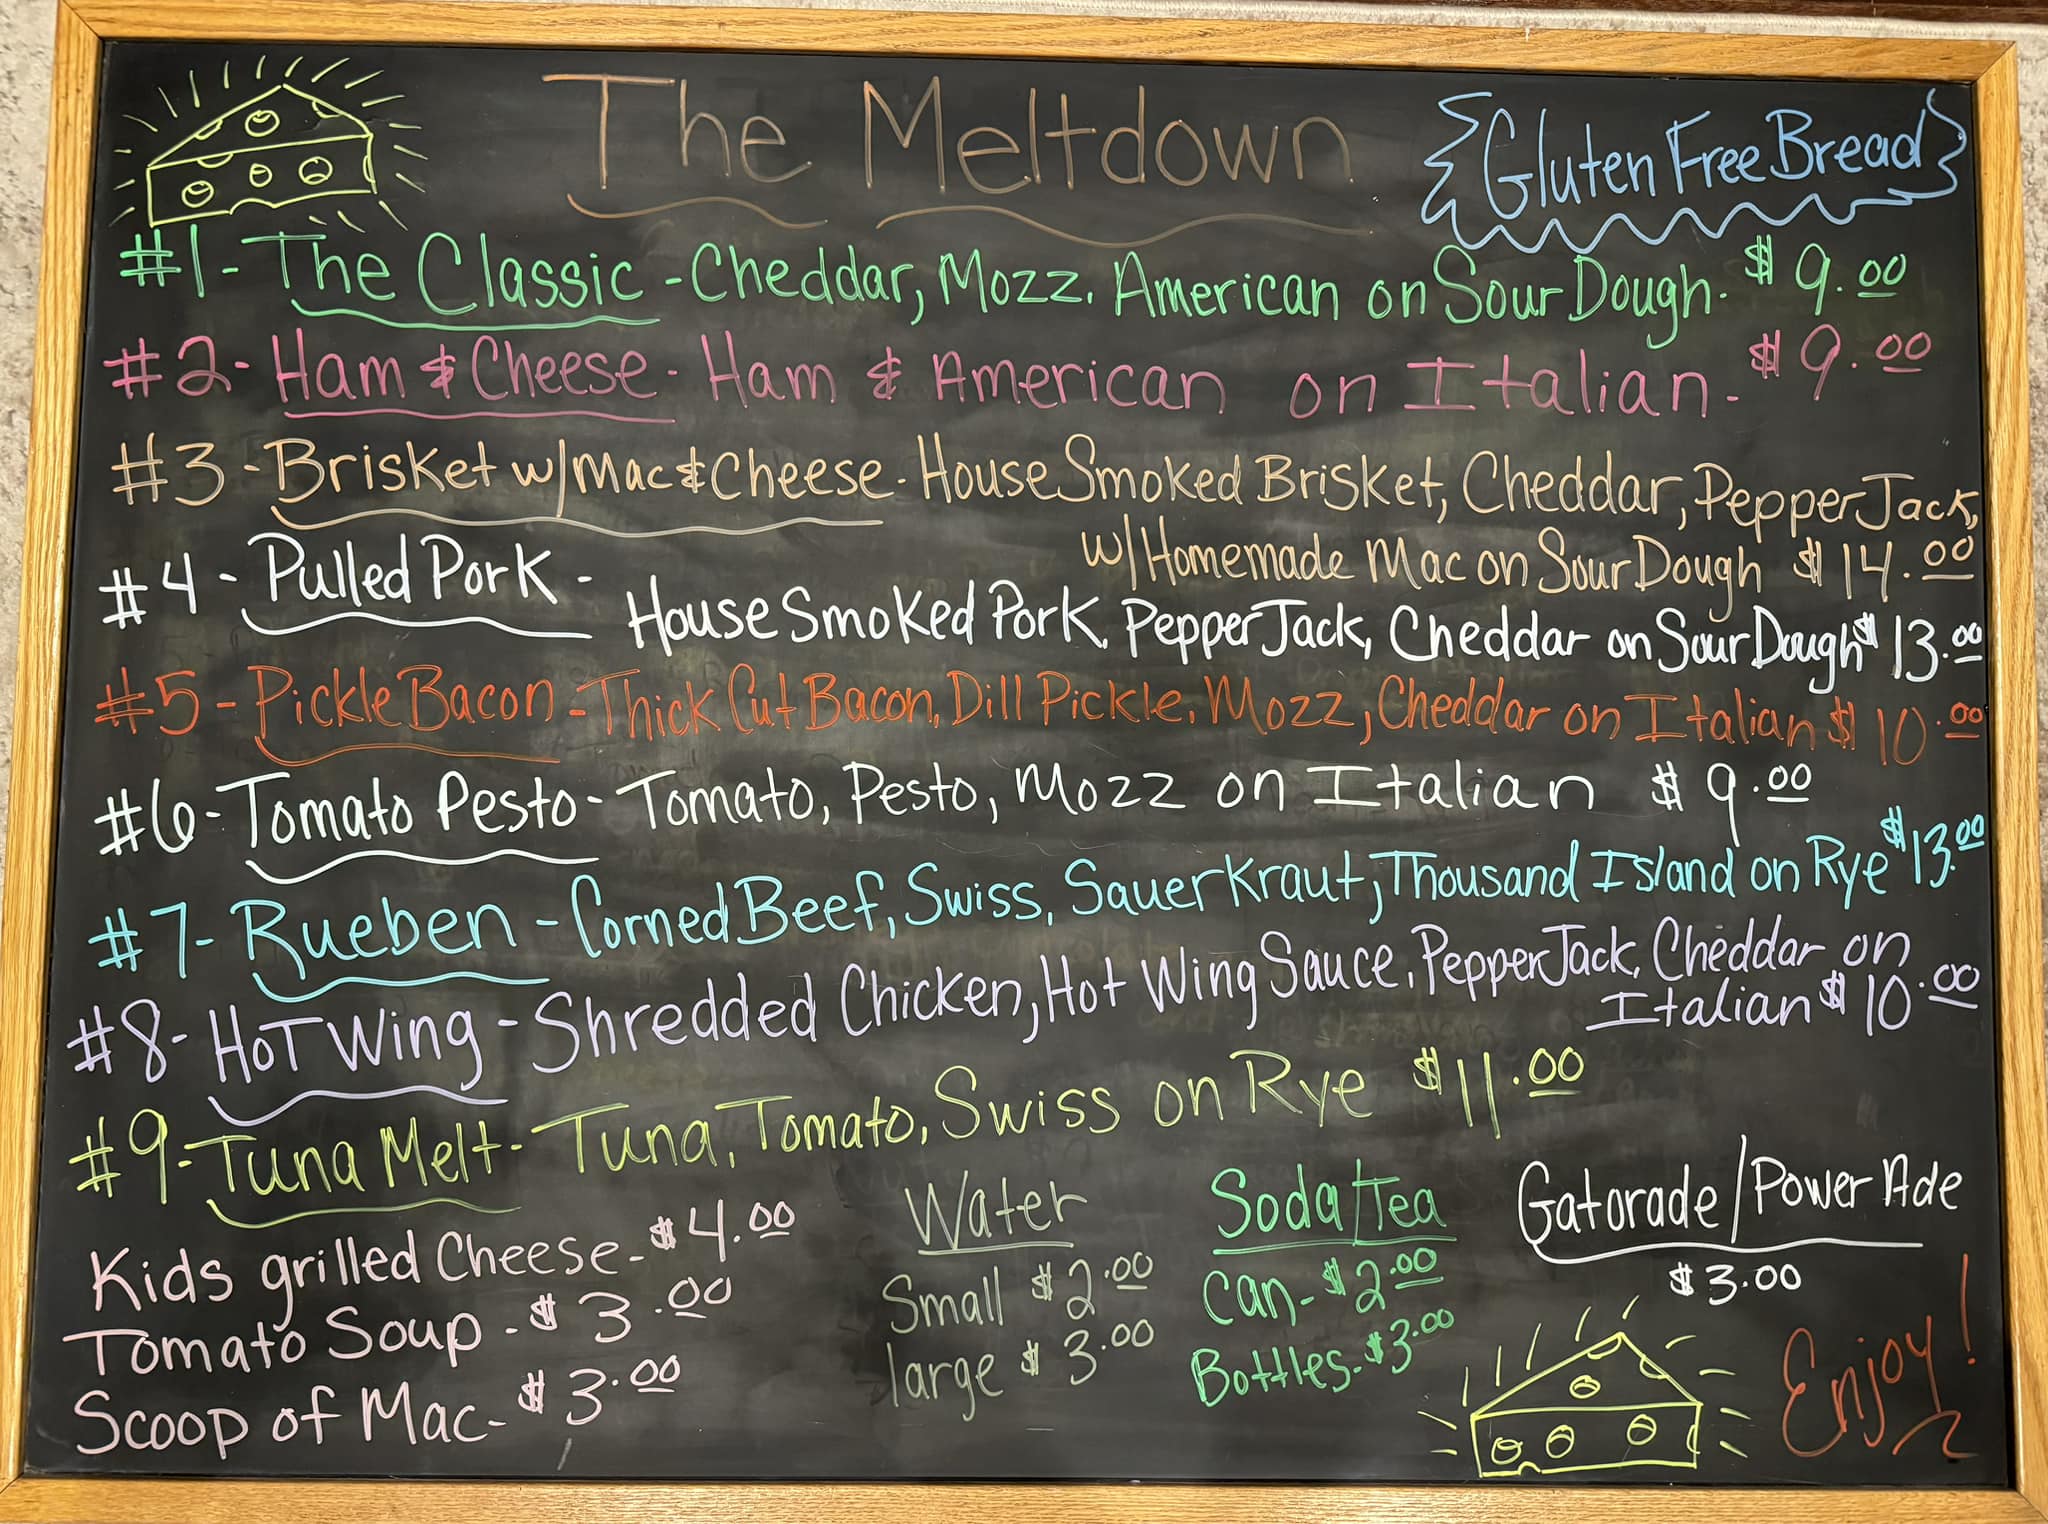 The Meltdown
Gluten Free Bread
#1- The Classic - Cheddar, Mozz. American on Sour Dough. $9.00
#2- Ham & Cheese- Ham & American on Italian. $9.00
#3- Brisket w/Mac & Cheese- House Smoked Brisket, Cheddar, Pepper Jack,
w/Homemade Mac on Sour Dough $14.00
#4- Pulled Pork - House Smoked Pork, Pepper Jack, Cheddar on Sour Dough $13.00
#5- Pickle Bacon - Thick Cut Bacon, Dill Pickle, Mozz, Cheddar on Italian $10.00
#6- Tomato Pesto- Tomato, Pesto, Mozz on Italian $9.00
#7- Rueben - Corned Beef, Swiss, Sauerkraut, Thousand Island on Rye $13.00
#8- Hot Wing - Shredded Chicken, Hot Wing Sauce, Pepper Jack, Cheddar on
Italian $10.00
#9- Tuna Melt- Tuna, Tomato, Swiss on Rye $11.00
Kids grilled Cheese- $4.00
Tomato Soup - $3.00
Scoop of Mac- $3.00
Water
Small $2.00
large $3.00
Soda/Tea
Can- $2.00
Bottles- $3.00
Gatorade/Power Ade
$3.00
Enjoy!